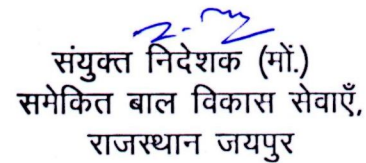 संयुक्त निदेशक (मों.)
समेकित बाल विकास सेवाएँ,
राजस्थान जयपुर